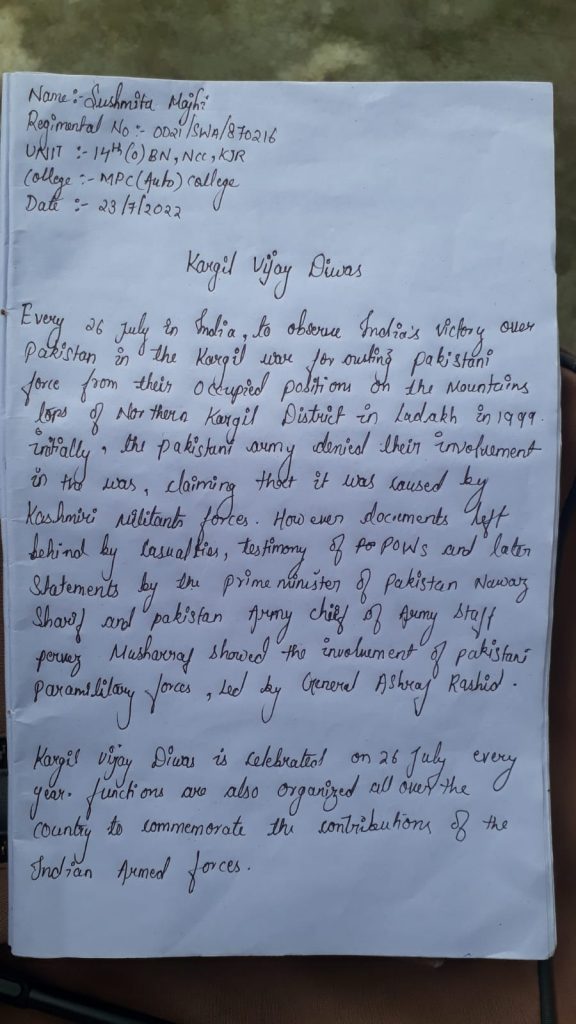 Name:- Sushmita Majhi
Regimental No :- OD21/SWA/870216
UNIT :- 14th (O) BN, NCC, KJR
College :- MPC (Auto) College
Date :- 23/7/2022
Kargil Vijay Diwas
Every 26 July in India, to observe India's victory over
Pakistan in the Kargil war for outing pakistani
force from their occupied positions on the Mountains
tops of Northern Kargil District in Ladakh in 1999.
initially, the pakistani army denied their involvement
in the was, claiming that it was caused by
Kashmiri Militants forces. However documents left
behind by casualties, testimony of POWs and later
Statements by the prime minister of Pakistan Nawaz
Sharif and pakistan Army chief of Army Staff
pervez Musharraf showed the involvement of pakistani
Paramilitary forces, Led by General Ashraf Rashid.
Kargil Vijay Diwas is celebrated on 26 July every
year. functions are also organized all over the
country to commemorate the contributions of the
Indian Armed forces.